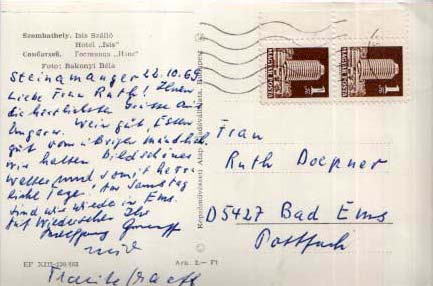 Szombathely. Isis Szálló
Hotel „Isis"
Сомбатхей. Гостиница „Изис"
Foto: Bakonyi Béla
Steinamanger 22.10.69
Liebe Frau Ruth! Ihnen
die herzlichsten Grüße aus
Ungarn. Wein gut, Essen
gut
Wir hatten bildschönes
Wetter und somit herr-
liche Tage. Am Samstag
sind wir wieder in Ems.
Auf Wiedersehen Ihr
Wolfgang
EF XIII-120/693
Ára: 2.- Ft
Képzőművészeti Alap Kiadóvállalata, Budapest
MAGYAR POSTA
1 Ft
MAGYAR POSTA
1 Ft
Frau
Ruth Doepner
D5427 Bad Ems
Postfach